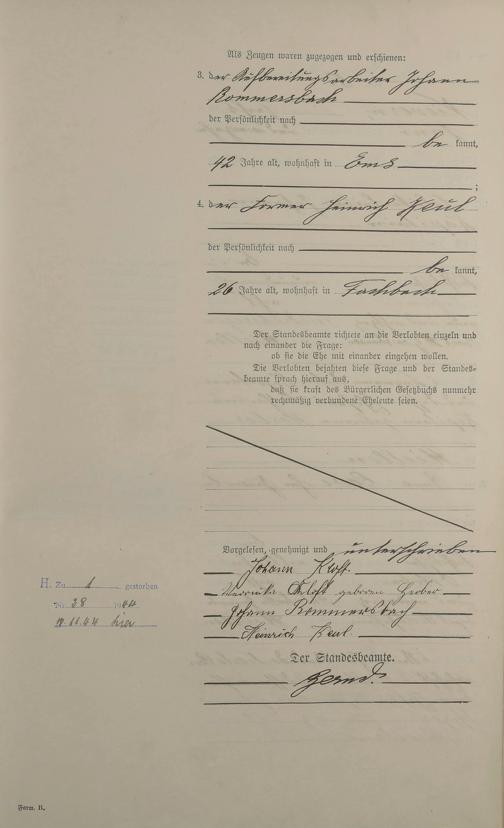 Als Zeugen waren zugezogen und erschienen:
3. der Aufbereitungsarbeiter Johann
Rommersbach
der Persönlichkeit nach
be kannt,
42 Jahre alt, wohnhaft in Ems
;
4. der Former Heinrich Keul
der Persönlichkeit nach
be kannt,
26 Jahre alt, wohnhaft in Fachbach
Der Standesbeamte richtete an die Verlobten einzeln und
nach einander die Frage:
ob sie die Ehe mit einander eingehen wollen.
Die Verlobten bejahten diese Frage und der Standes-
beamte sprach hierauf aus,
daß sie kraft des Bürgerlichen Gesetzbuchs nunmehr
rechtmäßig verbundene Eheleute seien.
Vorgelesen, genehmigt und unterschrieben
Johann
geboren
Johann Rommersbach
Heinrich Keul.
Der Standesbeamte.
H. Zu 1 gestorben
Nr. 38 1944
11.44 hier
Form. B.